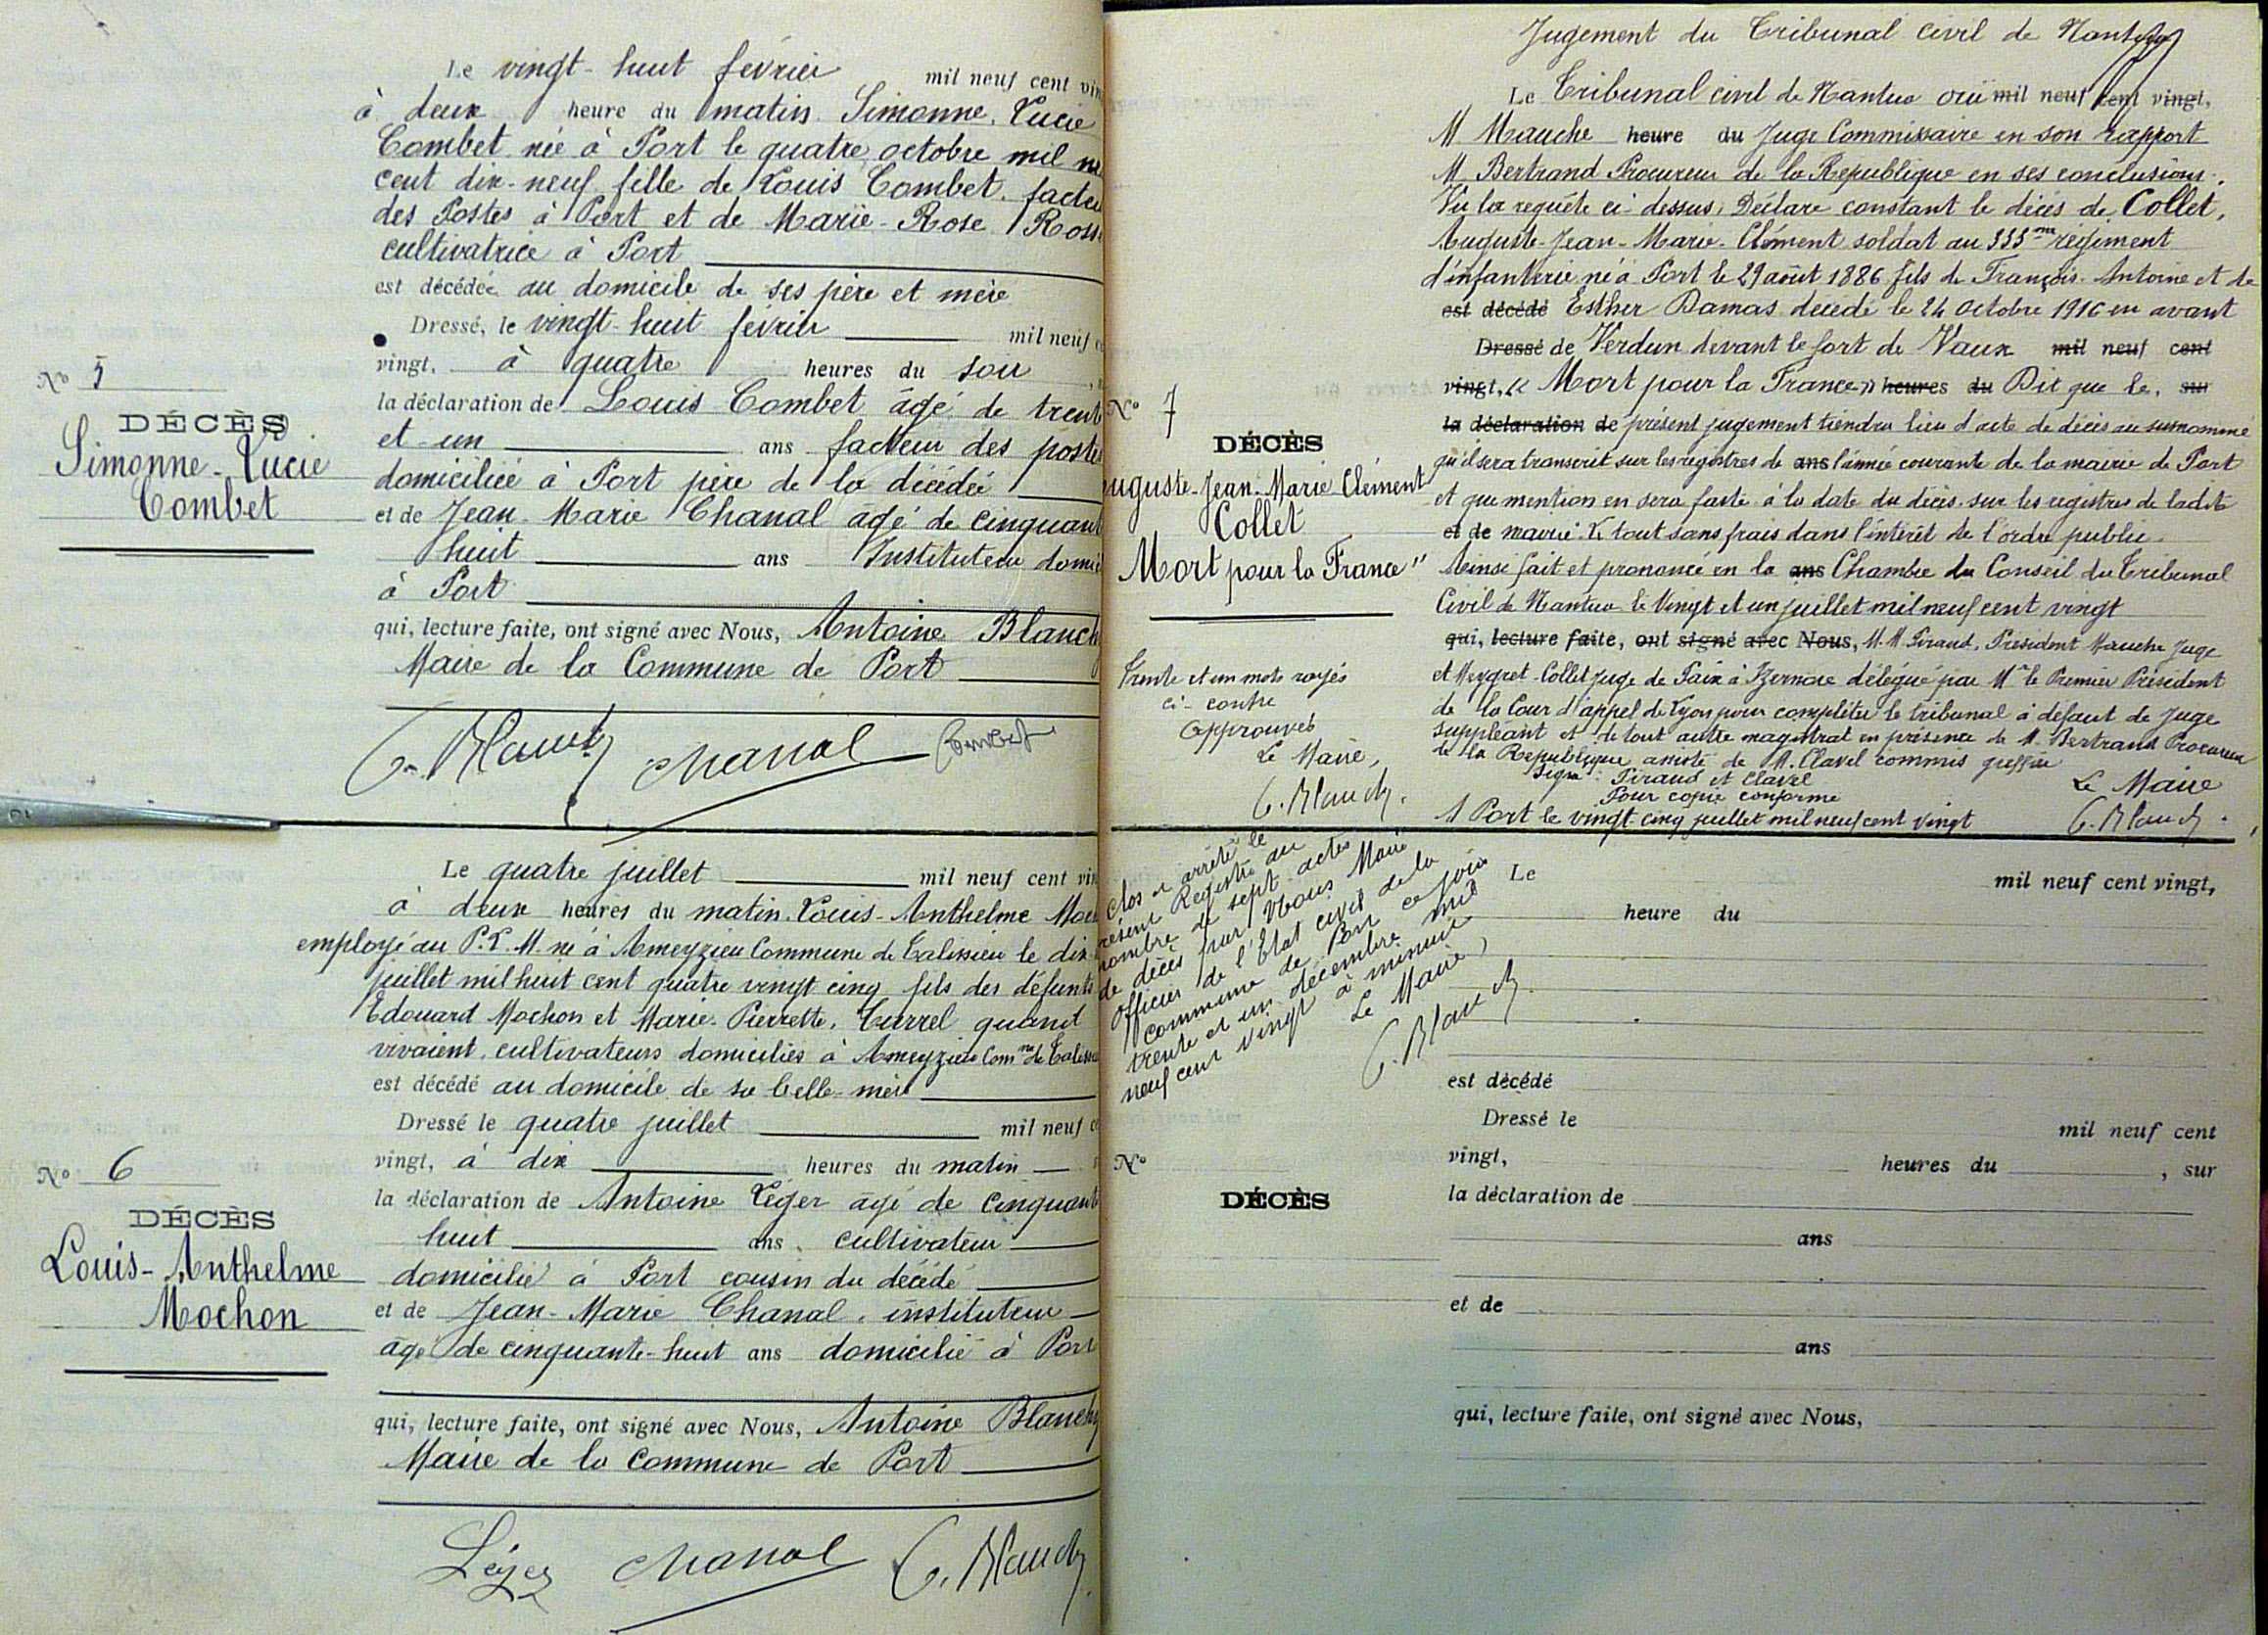 Le vingt-huit février mil neuf cent vin
à deux heure du matin Simonne, Lucie
Combet née à Port le quatre octobre mil ne
cent dix-neuf fille de Louis Combet, facteu
des Postes à Port et de Marie-Rose Ross
cultivatrice à Port
est décédée au domicile de ses père et mère
Dressé, le vingt-huit février mil neuf c
vingt, à quatre heures du soir
la déclaration de Louis Combet âgé de trent
et un ans facteur des poste
domiciliéé à Port père de la décédée
et de Jean-Marie Chanal agé de cinquant
huit ans Instituteur domi
à Port
qui, lecture faite, ont signé avec Nous, Antoine Blanch
Maire de la Commune de Port
A. Blanchy Chanal Combet
No 5
DÉCÈS
Simonne-Lucie
Combet
Le quatre juillet mil neuf cent vin
à deux heures du matin Louis-Anthelme Moc
employé au P.L.M. né à Ameyzieu Commune de Talissieu le dix
juillet mil huit cent quatre vingt cinq fils des défunts
Edouard Mochon et Marie-Pierrette, Currel quand
vivaient cultivateurs domiciliés à Ameyzieu Comne de Talissi
est décédé au domicile de sa belle-mère
Dressé le quatre juillet mil neuf c
vingt, à dix heures du matin
la déclaration de Antoine Léger agé de cinquant
huit ans, cultivateur
domicilié à Port cousin du décédé
et de Jean-Marie Chanal, instituteur
âgé de cinquante-huit ans domicilié à Port
qui, lecture faite, ont signé avec Nous, Antoine Blanchy
Maire de la Commune de Port
Léger Chanal A. Blanchy
No 6
DÉCÈS
Louis-Anthelme
Mochon
Jugement du Tribunal civil de Nantua
Le Tribunal civil de Nantua ouï mil neuf cent vingt,
M Mauche heure du Juge Commissaire en son rapport
M. Bertrand Procureur de la République en ses conclusions.
Vu la requête ci-dessus, Déclare constant le décès de Collet,
Auguste-Jean-Marie-Clément soldat au 333me régiment
d'infanterie né à Port le 29 août 1886 fils de François-Antoine et de
est décédé Esther Damas décédé le 24 octobre 1916 en avant
Dressé de Verdun devant le fort de Vaux mil neuf cent
vingt, « Mort pour la France » heures du Dit que le, sur
la déclaration de présent jugement tiendra lieu d'acte de décès au surnommé
qu'il sera transcrit sur les registres de ans l'année courante de la mairie de Port
et que mention en sera faite à la date du décès sur les registres de ladite
et de mairie. Le tout sans frais dans l'intérêt de l'ordre public.
Ainsi fait et prononcé en la ans Chambre du Conseil du Tribunal
Civil de Nantua le Vingt et un juillet mil neuf cent vingt
qui, lecture faite, ont signé avec Nous, M.M. Piraud, Président Mauche Juge
et Meygret-Collet juge de Paix à Izernore délégué par Mr le Premier Président
de la Cour d'appel de Lyon pour compléter le tribunal à défaut de Juge
suppléant et de tout autre magistrat en présence de M. Bertrand Procureur
de la République assisté de M. Clavel commis greffier
Signé: Piraud et Clavel
Pour copie conforme
A Port le vingt cinq juillet mil neuf cent vingt
Le Maire
A. Blanchy.
No 7
DÉCÈS
uguste-Jean-Marie Clément
Collet
Mort pour la France"
Trente et un mots rayés
ci-contre
Approuvés
Le Maire,
A. Blanchy.
Clos et arrêté le
résent Registre au
nombre de sept actes
de décès par Nous Maire
Officier de l'Etat civil de la
Commune de Port ce jour
trente et un décembre mil
neuf cent vingt à minuit
Le Maire,
A. Blanchy.
Le mil neuf cent vingt,
heure du
est décédé
Dressé le mil neuf cent
vingt, heures du , sur
la déclaration de
ans
et de
ans
qui, lecture faite, ont signé avec Nous,
No
DÉCÈS